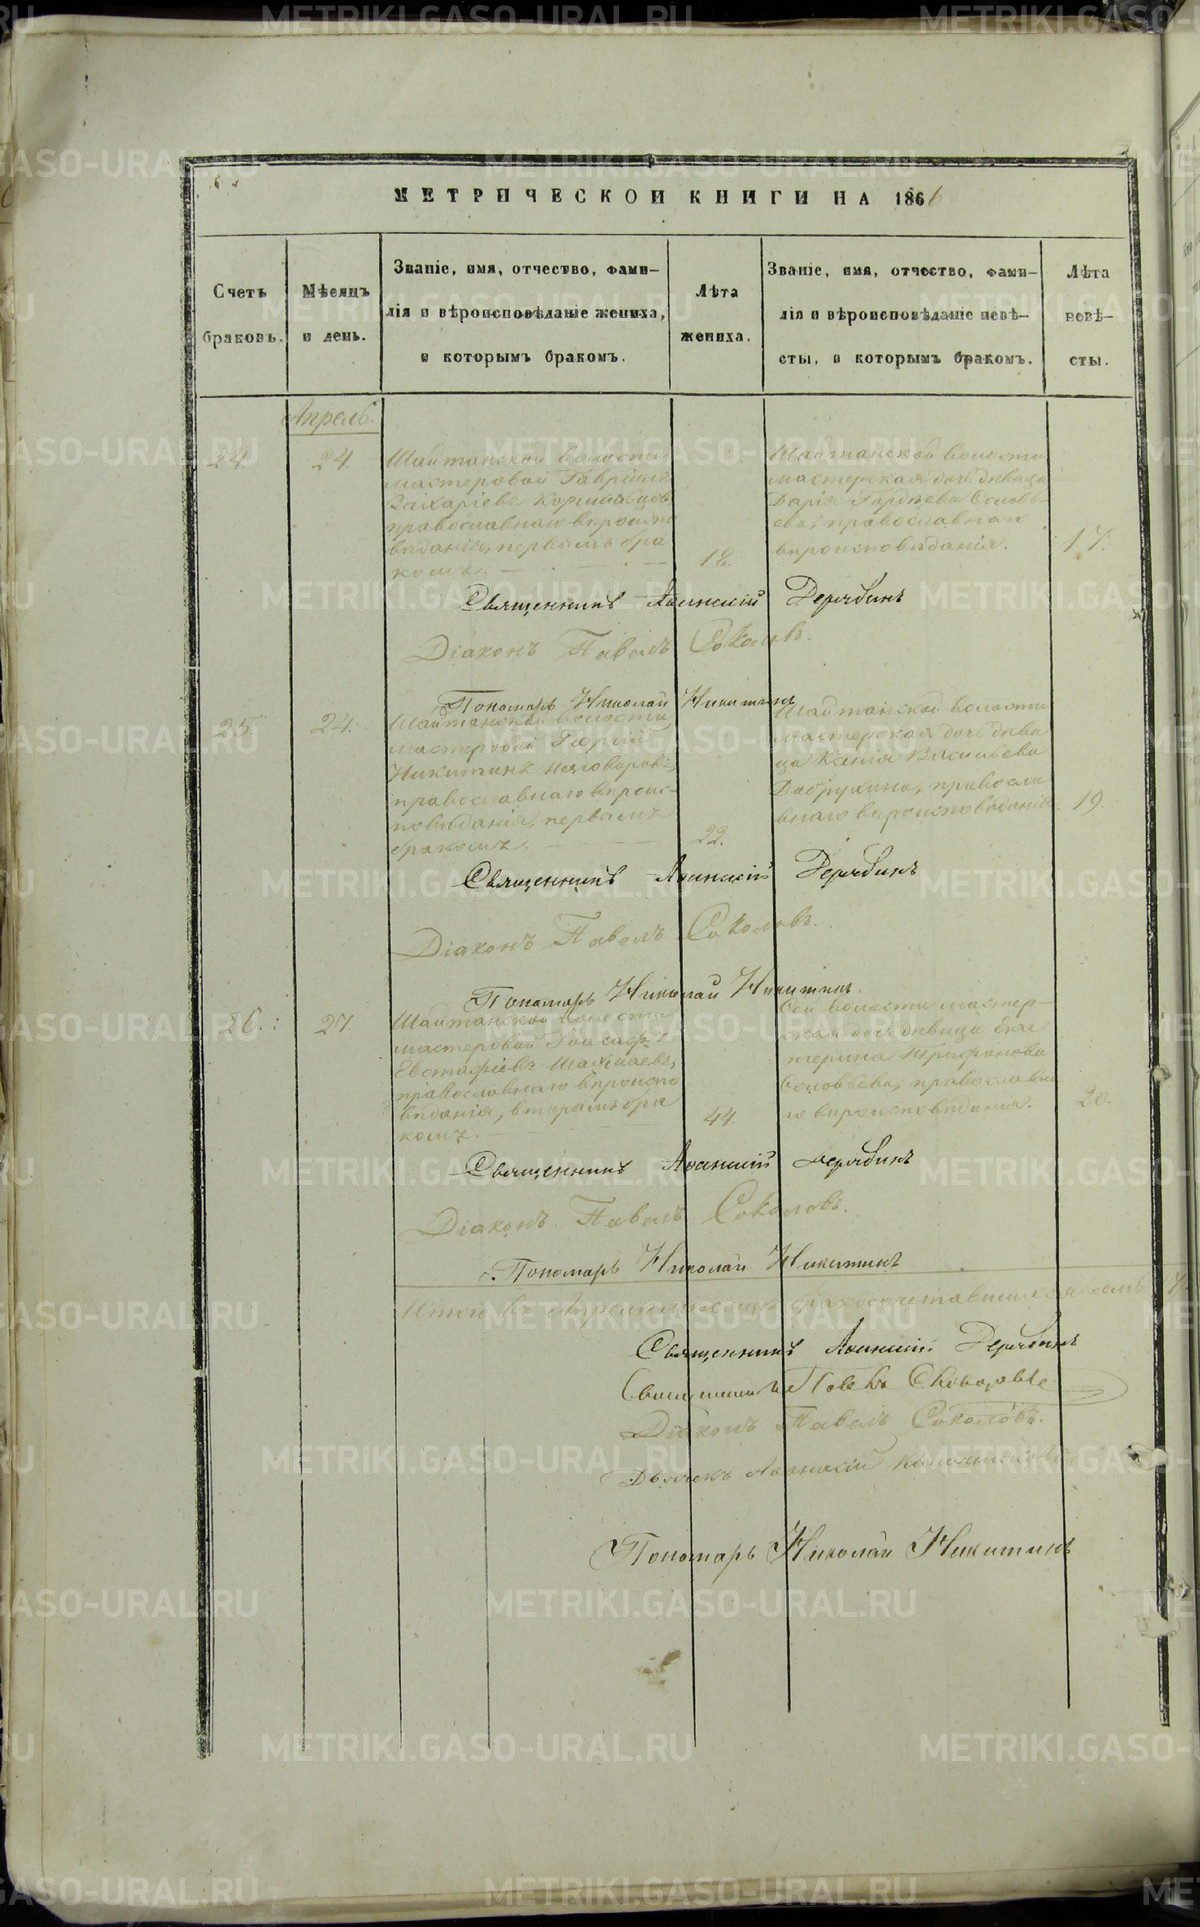 МЕТРИЧЕСКОЙ КНИГИ НА 1866
Счетъ браковъ.
Мѣсяцъ и день.
Званіе, имя, отчество, фами-
лія и вѣроисповѣданіе жениха,
и которымъ бракомъ.
Лѣта жениха.
Званіе, имя, отчество, фами-
лія и вѣроисповѣданіе невѣ-
сты, и которымъ бракомъ.
Лѣта невѣ-
сты.
Апрель.
24
24.
Шайтанской волости
мастеровой Гавріилъ
Захаріевъ
православнаго вѣроиспо
вѣданія, первымъ бра
комъ.
18.
Шайтанской волости
мастерская дочь дѣвица
Дарія Гордѣева Соловь-
ева, православнаго
вѣроисповѣданія.
17.
Священникъ Аѳанасій Дерябинъ
Діаконъ Павелъ Соколовъ.
Пономарь Николай Никитинъ
25.
24.
Шайтанской волости
мастеровой Георгій
Никитинъ
православнаго вѣроис-
повѣданія, первымъ
бракомъ.
22.
Шайтанской волости
мастерская дочь дѣви
ца Ксенія Васильева
православ
наго вѣроисповѣданія
19.
Священникъ Аѳанасій Дерябинъ
Діаконъ Павелъ Соколовъ.
Пономарь Николай Никитинъ.
26.
27.
Шайтанской волости
мастеровой
Евстафіевъ
православнаго вѣроиспо
вѣданія, вторымъ бра
комъ.
44.
Сей волости мастер-
ская дочь дѣвица Ека
терина Трифонова
Соловьева, православна
го вѣроисповѣданія.
20.
Священникъ Аѳанасій Дерябинъ
Діаконъ Павелъ Соколовъ.
Пономарь Николай Никитинъ
Итого въ Апрелѣ мѣсяцѣ бракосочетавшихся
Священникъ Аѳанасій Дерябинъ
Священникъ
Діаконъ Павелъ Соколовъ.
Дьячекъ Аѳанасій
Пономарь Николай Никитинъ
METRIKI.GASO-URAL.RU